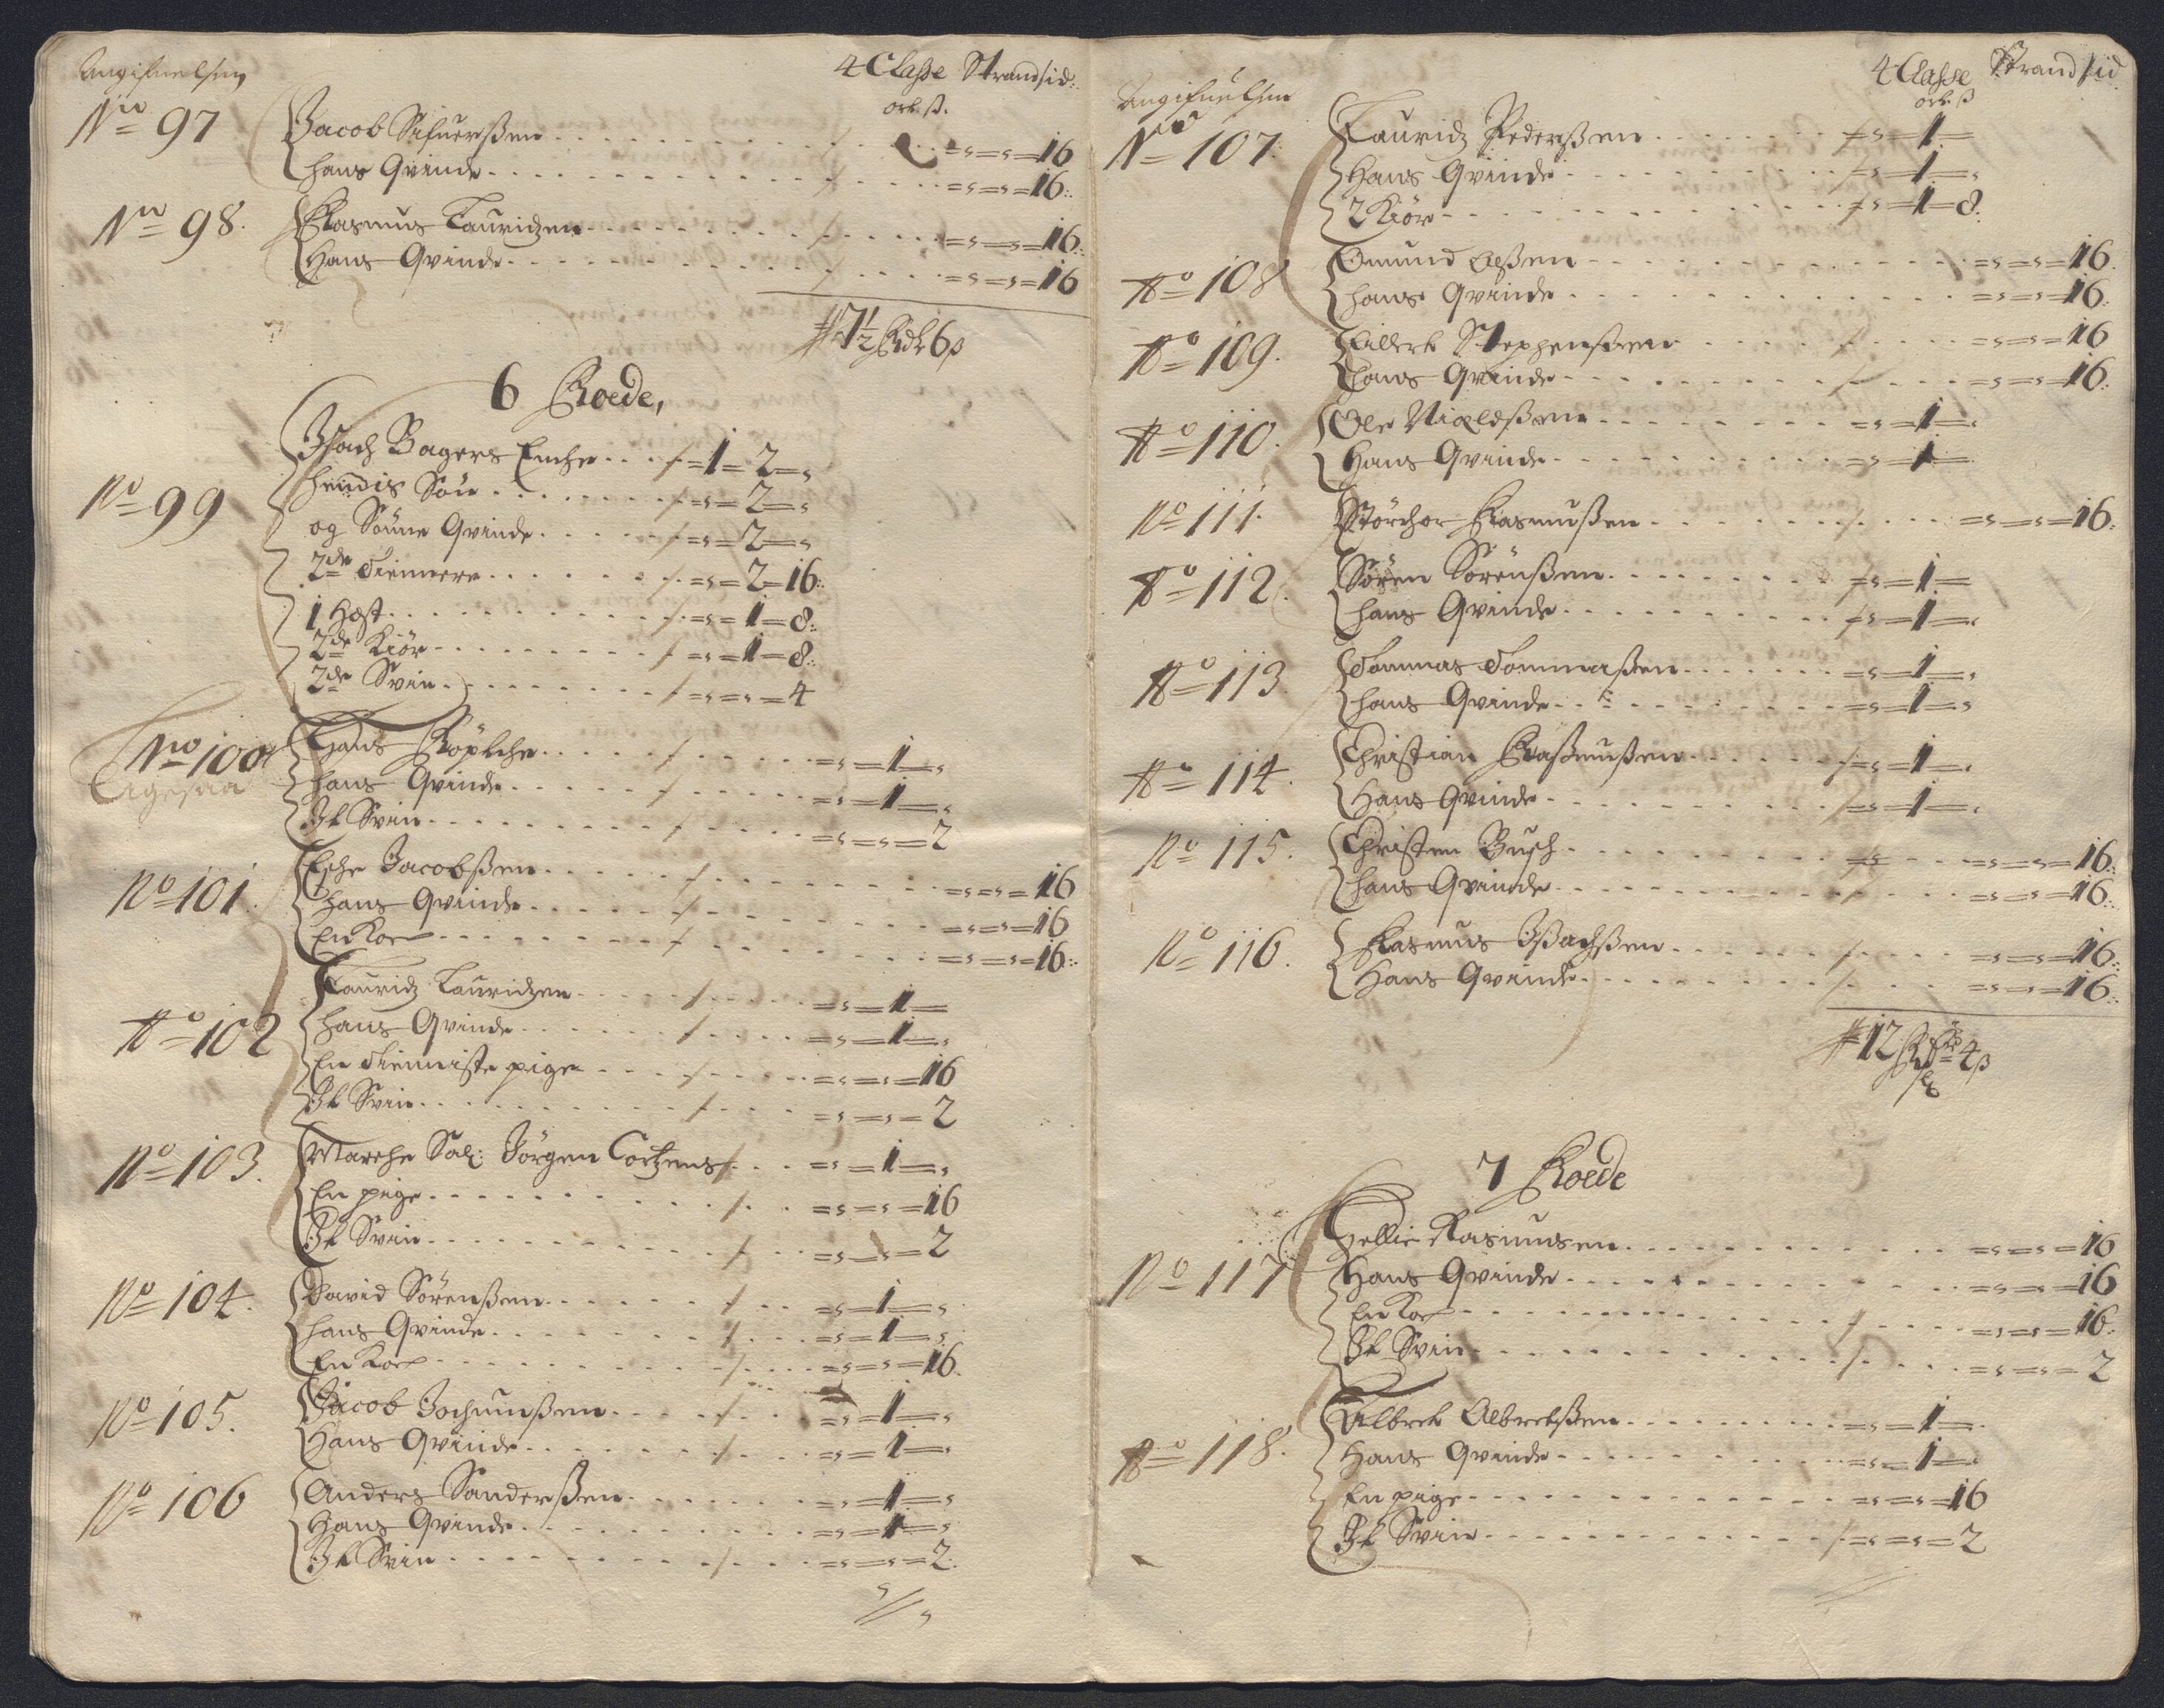 Angifuelsen 4 Classe Strandsid:
ort. ß.
No 97 Jacob Sifuerßen - = s = s = 16
hans Qvinde - = s = s = 16
No 98. Rasmus Lauridzen - = s = s = 16
Hans Qvinde - = s = s = 16
# 7½ Rdr 6 ß
6 Roede,
No 99 Isach Bagers Enche - = 1 = 2 = s
hendis Søn - = s = 2 = s
og Sønne Qvinde - = s = 2 = s
2de Tiennere - = s = 2 = 16
1 Hest - = s = 1 = 8
2de Kiør - = s = 1 = 8
2de Svin - = s = s = 4
No 100 Hans Röpkche - = s = 1 = s
hans Qvinde - = s = 1 = s
It Svin - = s = s = 2
No 101. Esche Jacobßen - = s = s = 16
hans Qvinde - = s = s = 16
En Koe - = s = s = 16
No 102 Lauridz Lauridzen - = s = 1 =
hans Qvinde - = s = 1 = s
En Tienniste pige - = s = s = 16
It Svin - = s = s = 2
No 103. Marche Sal: Jörgen Cortzens - = s = 1 = s
En pige - = s = s = 16
It Svin - = s = s = 2
No 104. David Sörenßen - = s = 1 = s
hans Qvinde - = s = 1 = s
En Koe - = s = s = 16
No 105. Jacob Jochumßen - = s = 1 = s
Hans Qvinde - = s = 1 = s
No 106 Anders Sanderßen - = s = 1 = s
Hans Qvinde - = s = 1 = s
It Svin - = s = s = 2
Angifuelsen 4 Classe Strandsid
ort. ß
No 107. Lauridz Pederßen - = s = 1 =
Hans Qvinde - = s = 1 = s
2 Kiör - = s = 1 = 8
No 108 Omund Olßen - = s = s = 16
hans Qvinde - = s = s = 16
No 109. Eillert Stephenßen - = s = s = 16
hans Qvinde - = s = s = 16
No 110. Ole Nielßen - = s = 1 = s
Hans Qvinde - = s = 1 =
No 111. Störchor Rasmußen - = s = s = 16
No 112. Sören Sörenßen - = s = 1 =
hans Qvinde - = s = 1 = s
No 113. Tommas Tommaßen - = s = 1 = s
hans Qvinde - = s = 1 = s
No 114. Christian Raßmußen - = s = 1 = s
Hans Qvinde - = s = 1 = s
No 115. Christen Busch - = s = s = 16
hans Qvinde - = s = s = 16
No 116. Rasmus Ißachßen - = s = s = 16
Hans Qvinde - = s = s = 16
# 12 Rdr 4 ß
7 Roede
No 117 Hellie Rasmusen - = s = s = 16
Hans Qvinde - = s = s = 16
En Koe - = s = s = 16
It Svin - = s = s = 2
No 118. Albret Albretßen - = s = 1 =
Hans Qvinde - = s = 1 = s
En pige - = s = s = 16
It Svin - = s = s = 2